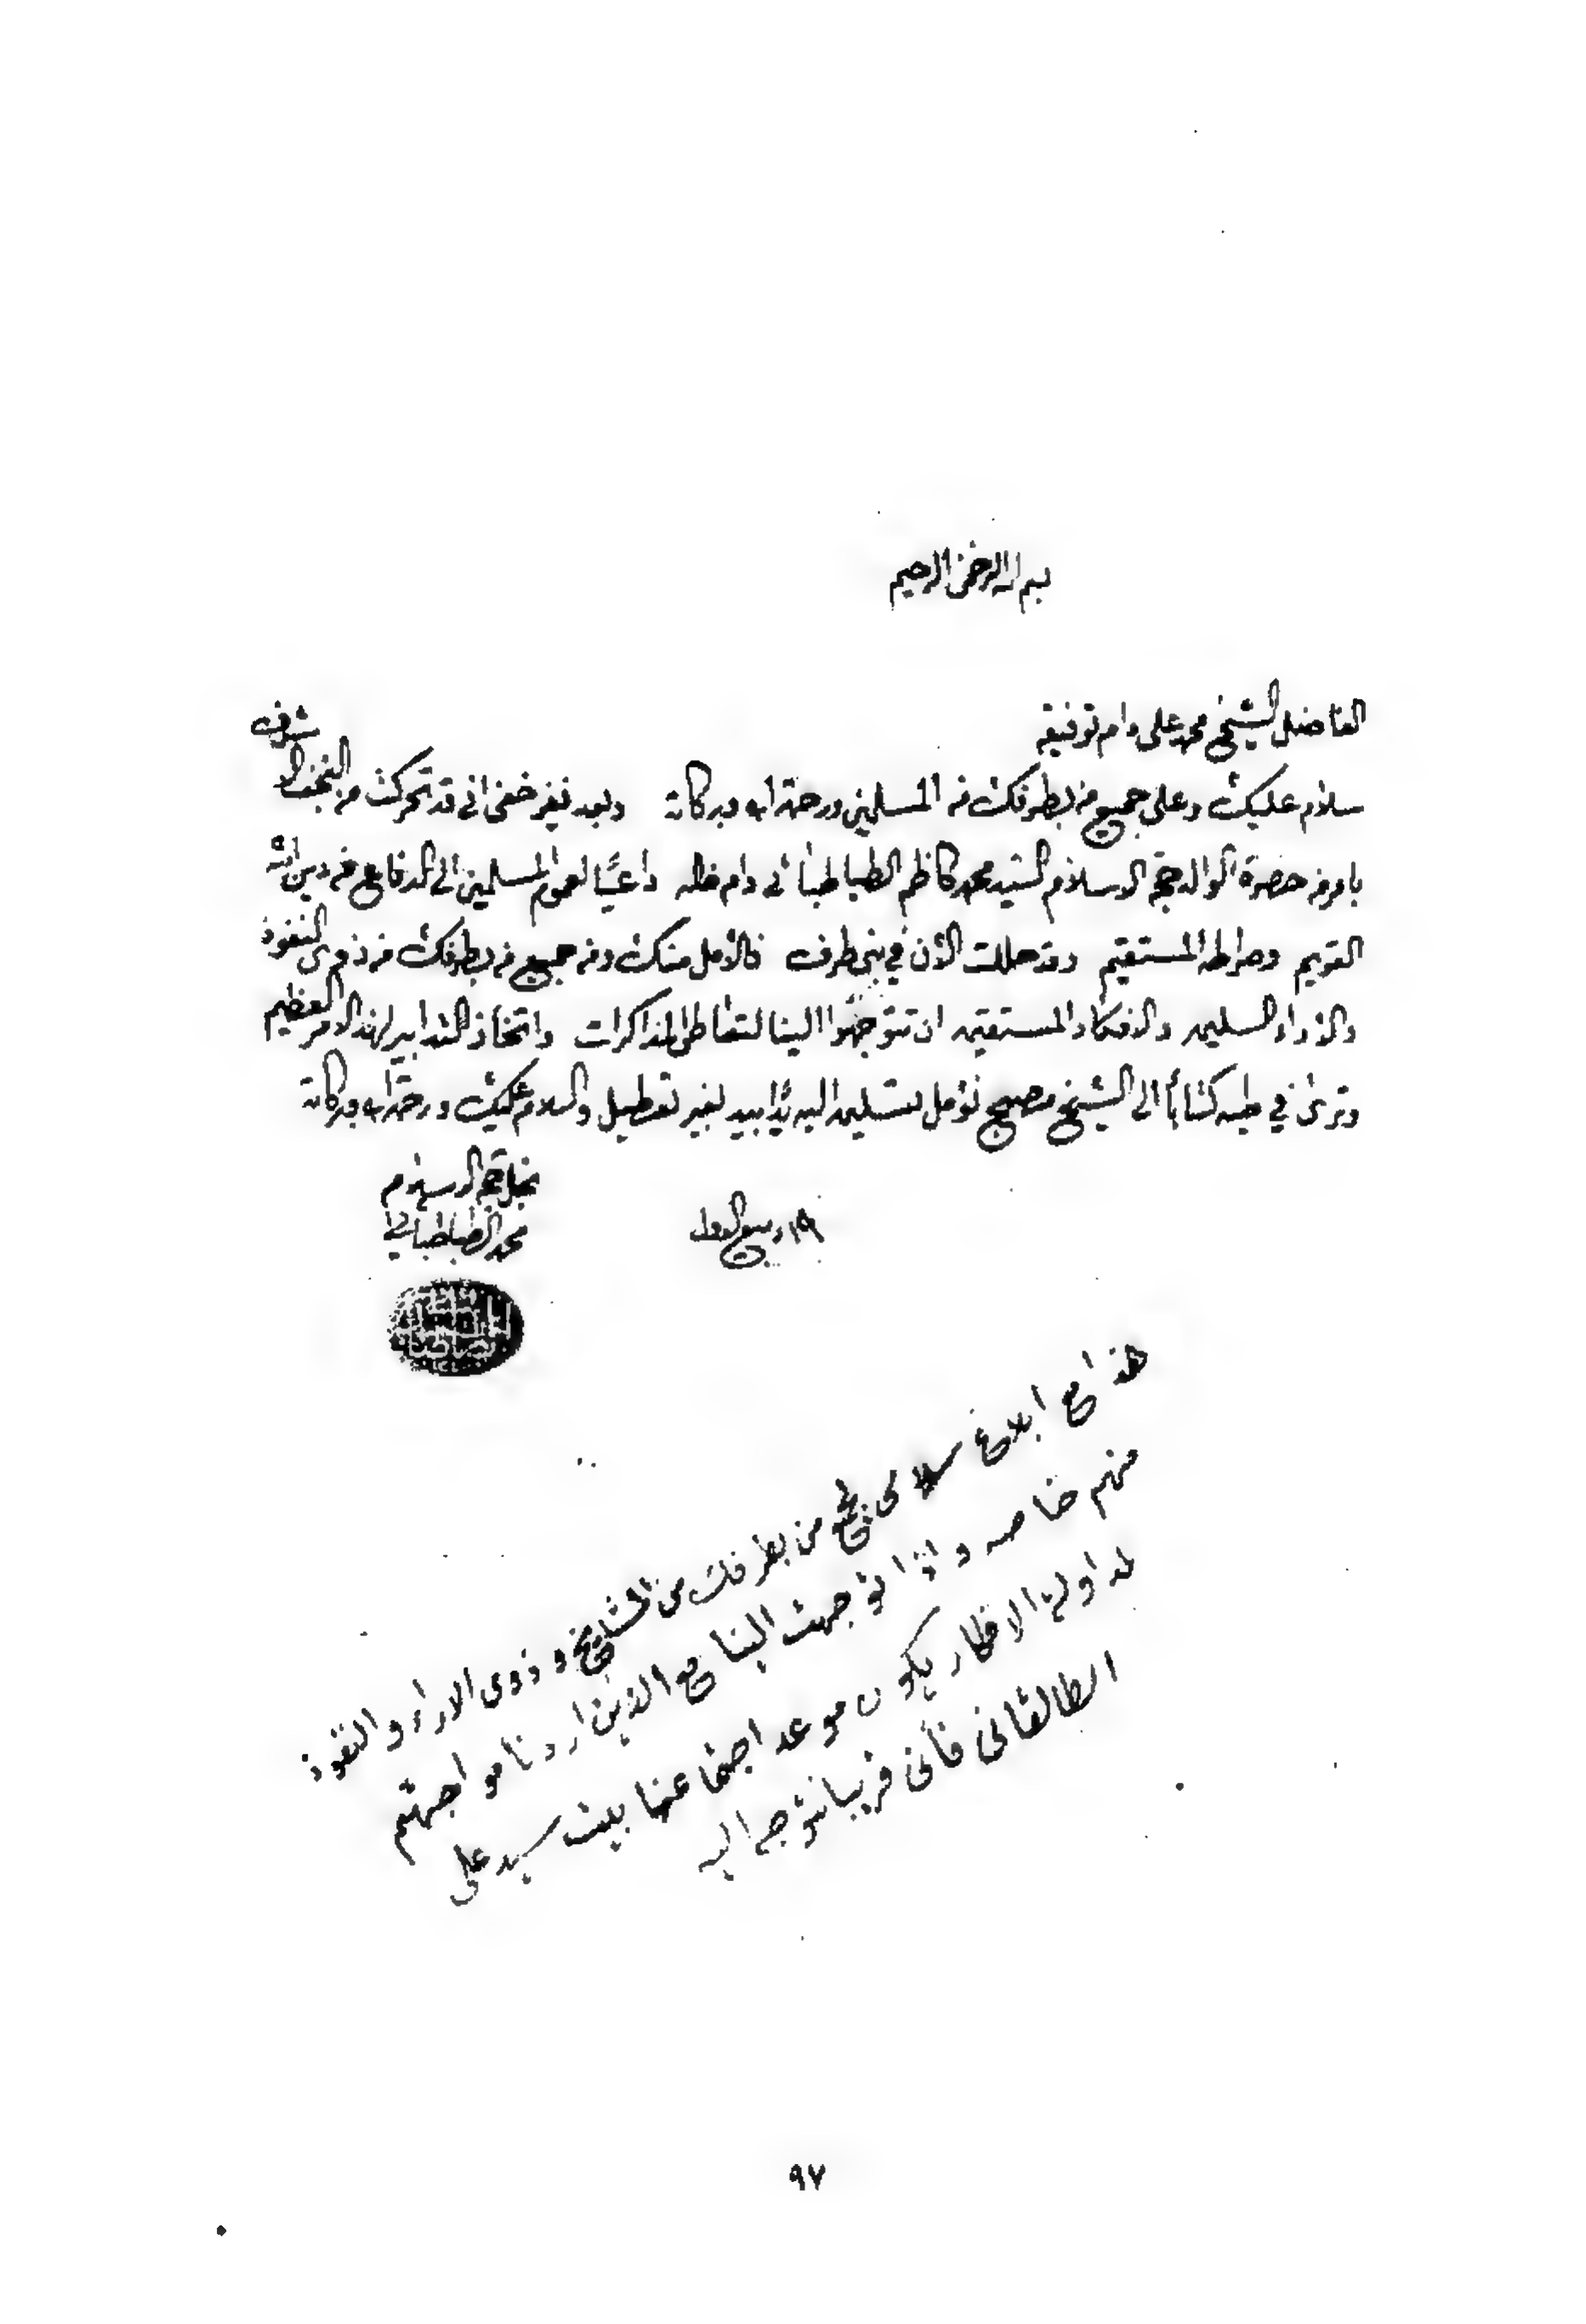 بسم الله الرحمن الرحيم
الفاضل الشيخ محمد علي دام توفيقه
سلام عليك وعلى جميع من بطرفك من المسلمين ورحمة الله وبركاته وبعد فغير خفي اني قد تحركت من النجف الاشرف
بامر من حضرة الوالد حجة الاسلام السيد محمد كاظم الطباطبائي دام ظله داعيًا لعموم المسلمين الى الدفاع عن دين الله
القويم وصراطه المستقيم وقد حللت الآن في بني طرف فالأمل منك ومن جميع من بطرفك من ذوي النفوذ
والآراء السليمه والافكار المستقيمه ان تتوجهوا الينا لتعاطي المذاكرات واتخاذ التدابير لهذا الامر العظيم
وترى في طيه كتابًا الى الشيخ مصبح نؤمل تسليمه اليه يدًا بيد بغير تعطيل والسلام عليك ورحمة الله وبركاته
نجل حجة الاسلام
محمد الطباطبائي
١٩ ربيع الاول
هذا مع ابلاغ سلامي جميع من بطرفك من المشايخ وذوى الاراء والنفوذ
منهم خاصه و اذا توجهت الينا مع الذين اردنا مواجهتهم
لمداولة الافكار يكون موعد اجتماعنا بيت سيد علي
الطالقاني فأني قريبا نتوجه اليه
٩٧